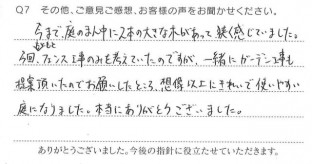 Q7 その他、ご意見ご感想、お客様の声をお聞かせください。
今まで、庭のまん中に2本の大きな木があって狭く感じていました。
もともと
今回、フェンス工事のみを考えていたのですが、一緒にガーデン工事も
提案頂いたのでお願いしたところ、想像以上にきれいで使いやすい
庭になりました。本当にありがとうございました。
ありがとうございました。今後の指針に役立たせていただきます。